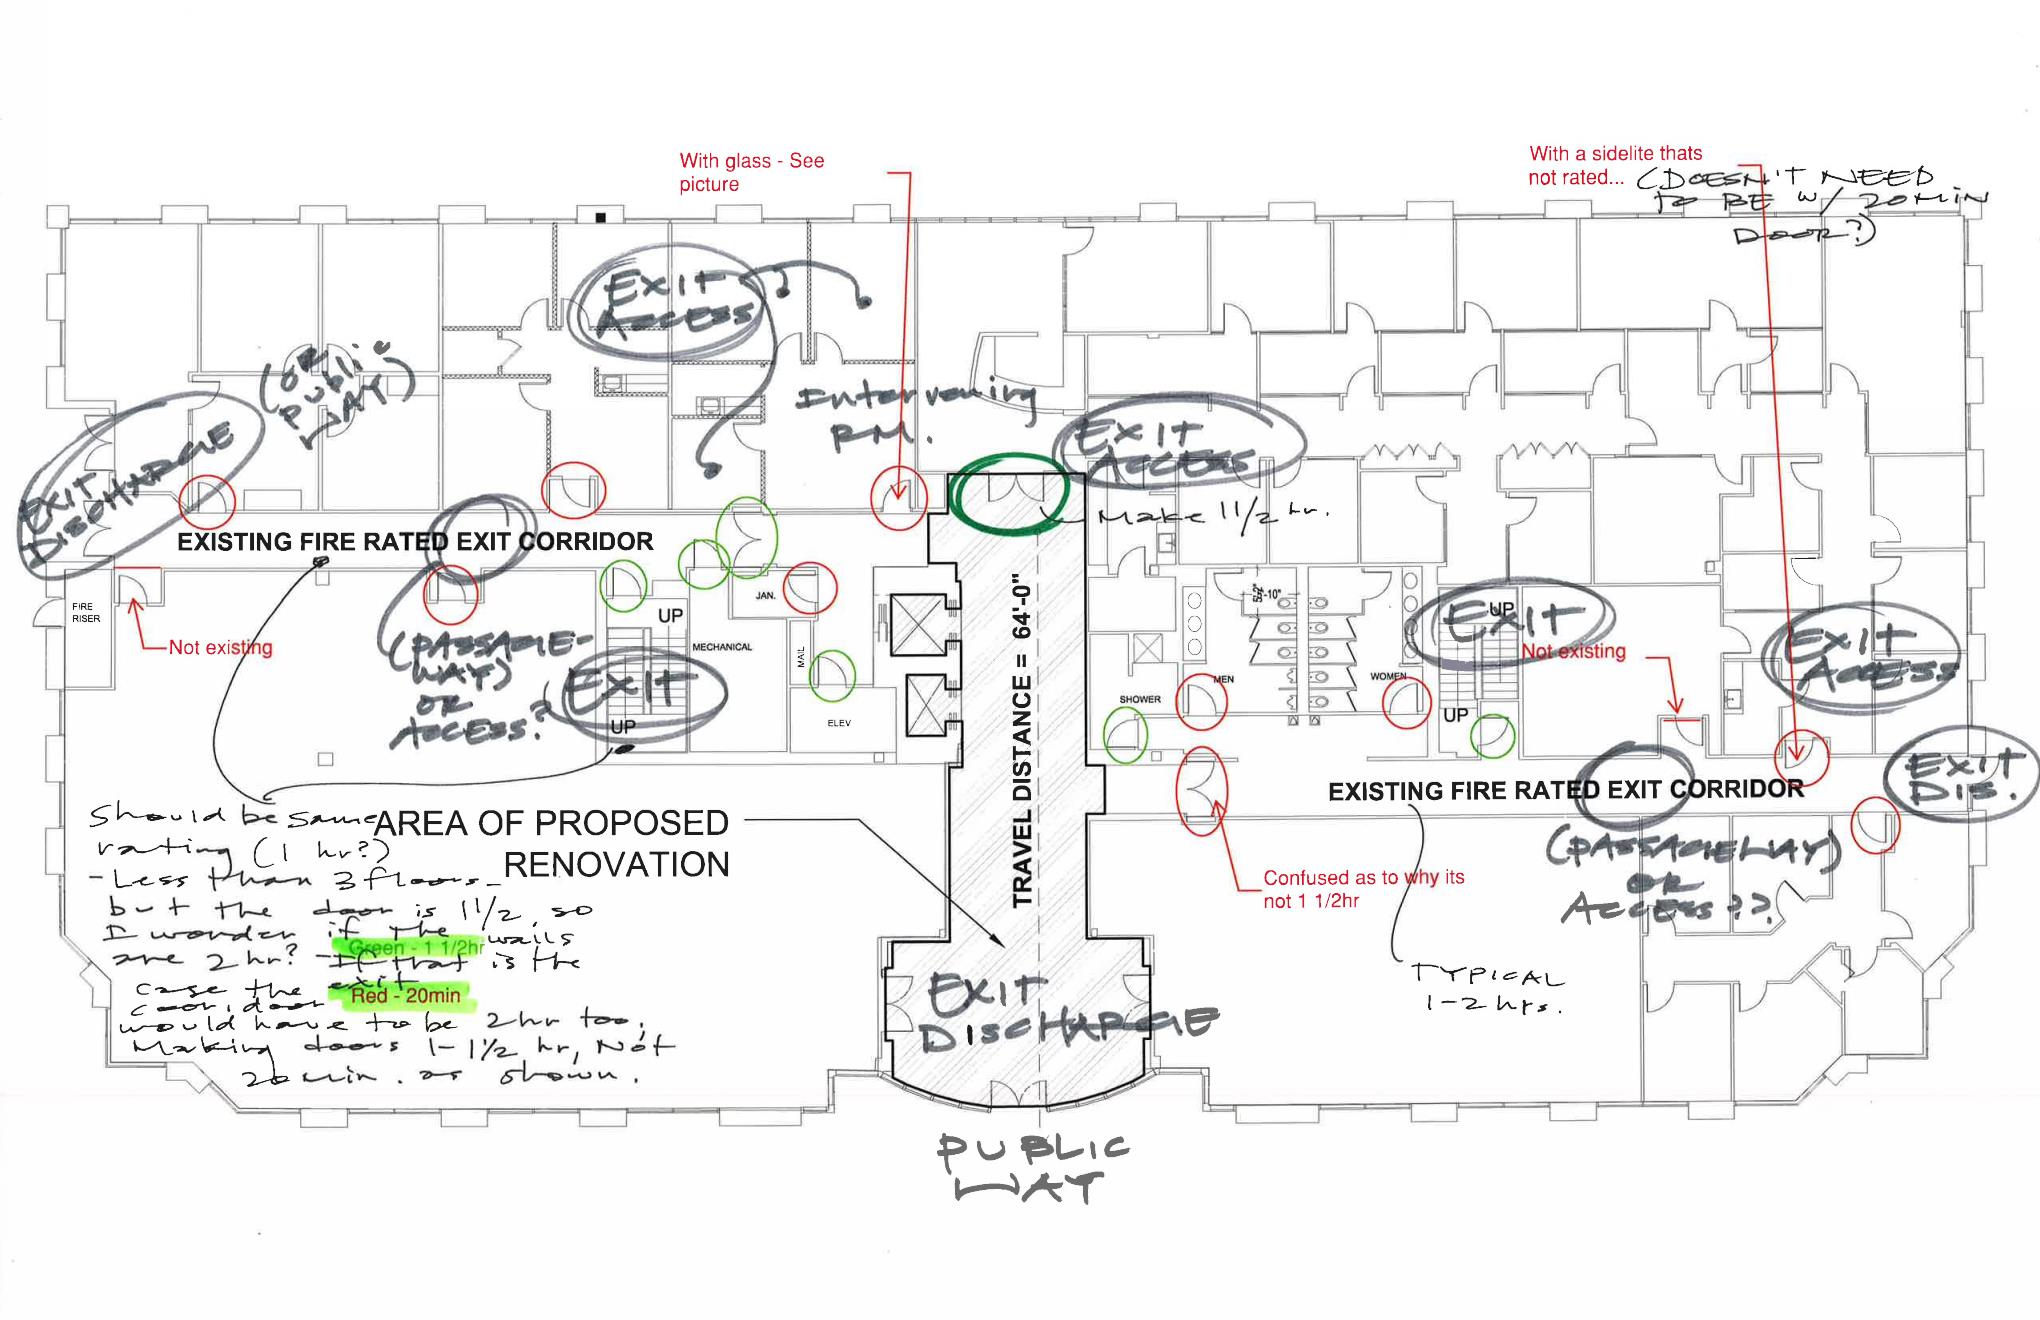 With glass - See
picture
With a sidelite thats
not rated...
(DOESN'T NEED
TO BE w/ 20 MIN
DOOR?)
EXIT
ACCESS
(OR
Public
WAY)
Intervening
RM.
EXIT
DISCHARGE
EXIT
ACCESS
Make 1 1/2 hr.
EXISTING FIRE RATED EXIT CORRIDOR
FIRE
RISER
Not existing
(PASSAGE-
WAY)
OR
ACCESS?
UP
EXIT
UP
MECHANICAL
JAN.
MAIL
ELEV
TRAVEL DISTANCE = 64'-0"
SHOWER
MEN
WOMEN
UP
EXIT
UP
Not existing
EXIT
ACCESS
EXIT
DIS.
EXISTING FIRE RATED EXIT CORRIDOR
(PASSAGEWAY)
OR
ACCESS??
Confused as to why its
not 1 1/2hr
TYPICAL
1-2 hrs.
AREA OF PROPOSED
RENOVATION
Should be same
rating (1 hr?)
- Less than 3 floors -
but the door is 1 1/2, so
I wonder if the walls
are 2 hr? - If that is the
case the exit
cooridoor
would have to be 2 hr too,
Making doors 1-1 1/2 hr, Not
20 min. as shown.
Green - 1 1/2hr
Red - 20min
EXIT
DISCHARGE
PUBLIC
WAY